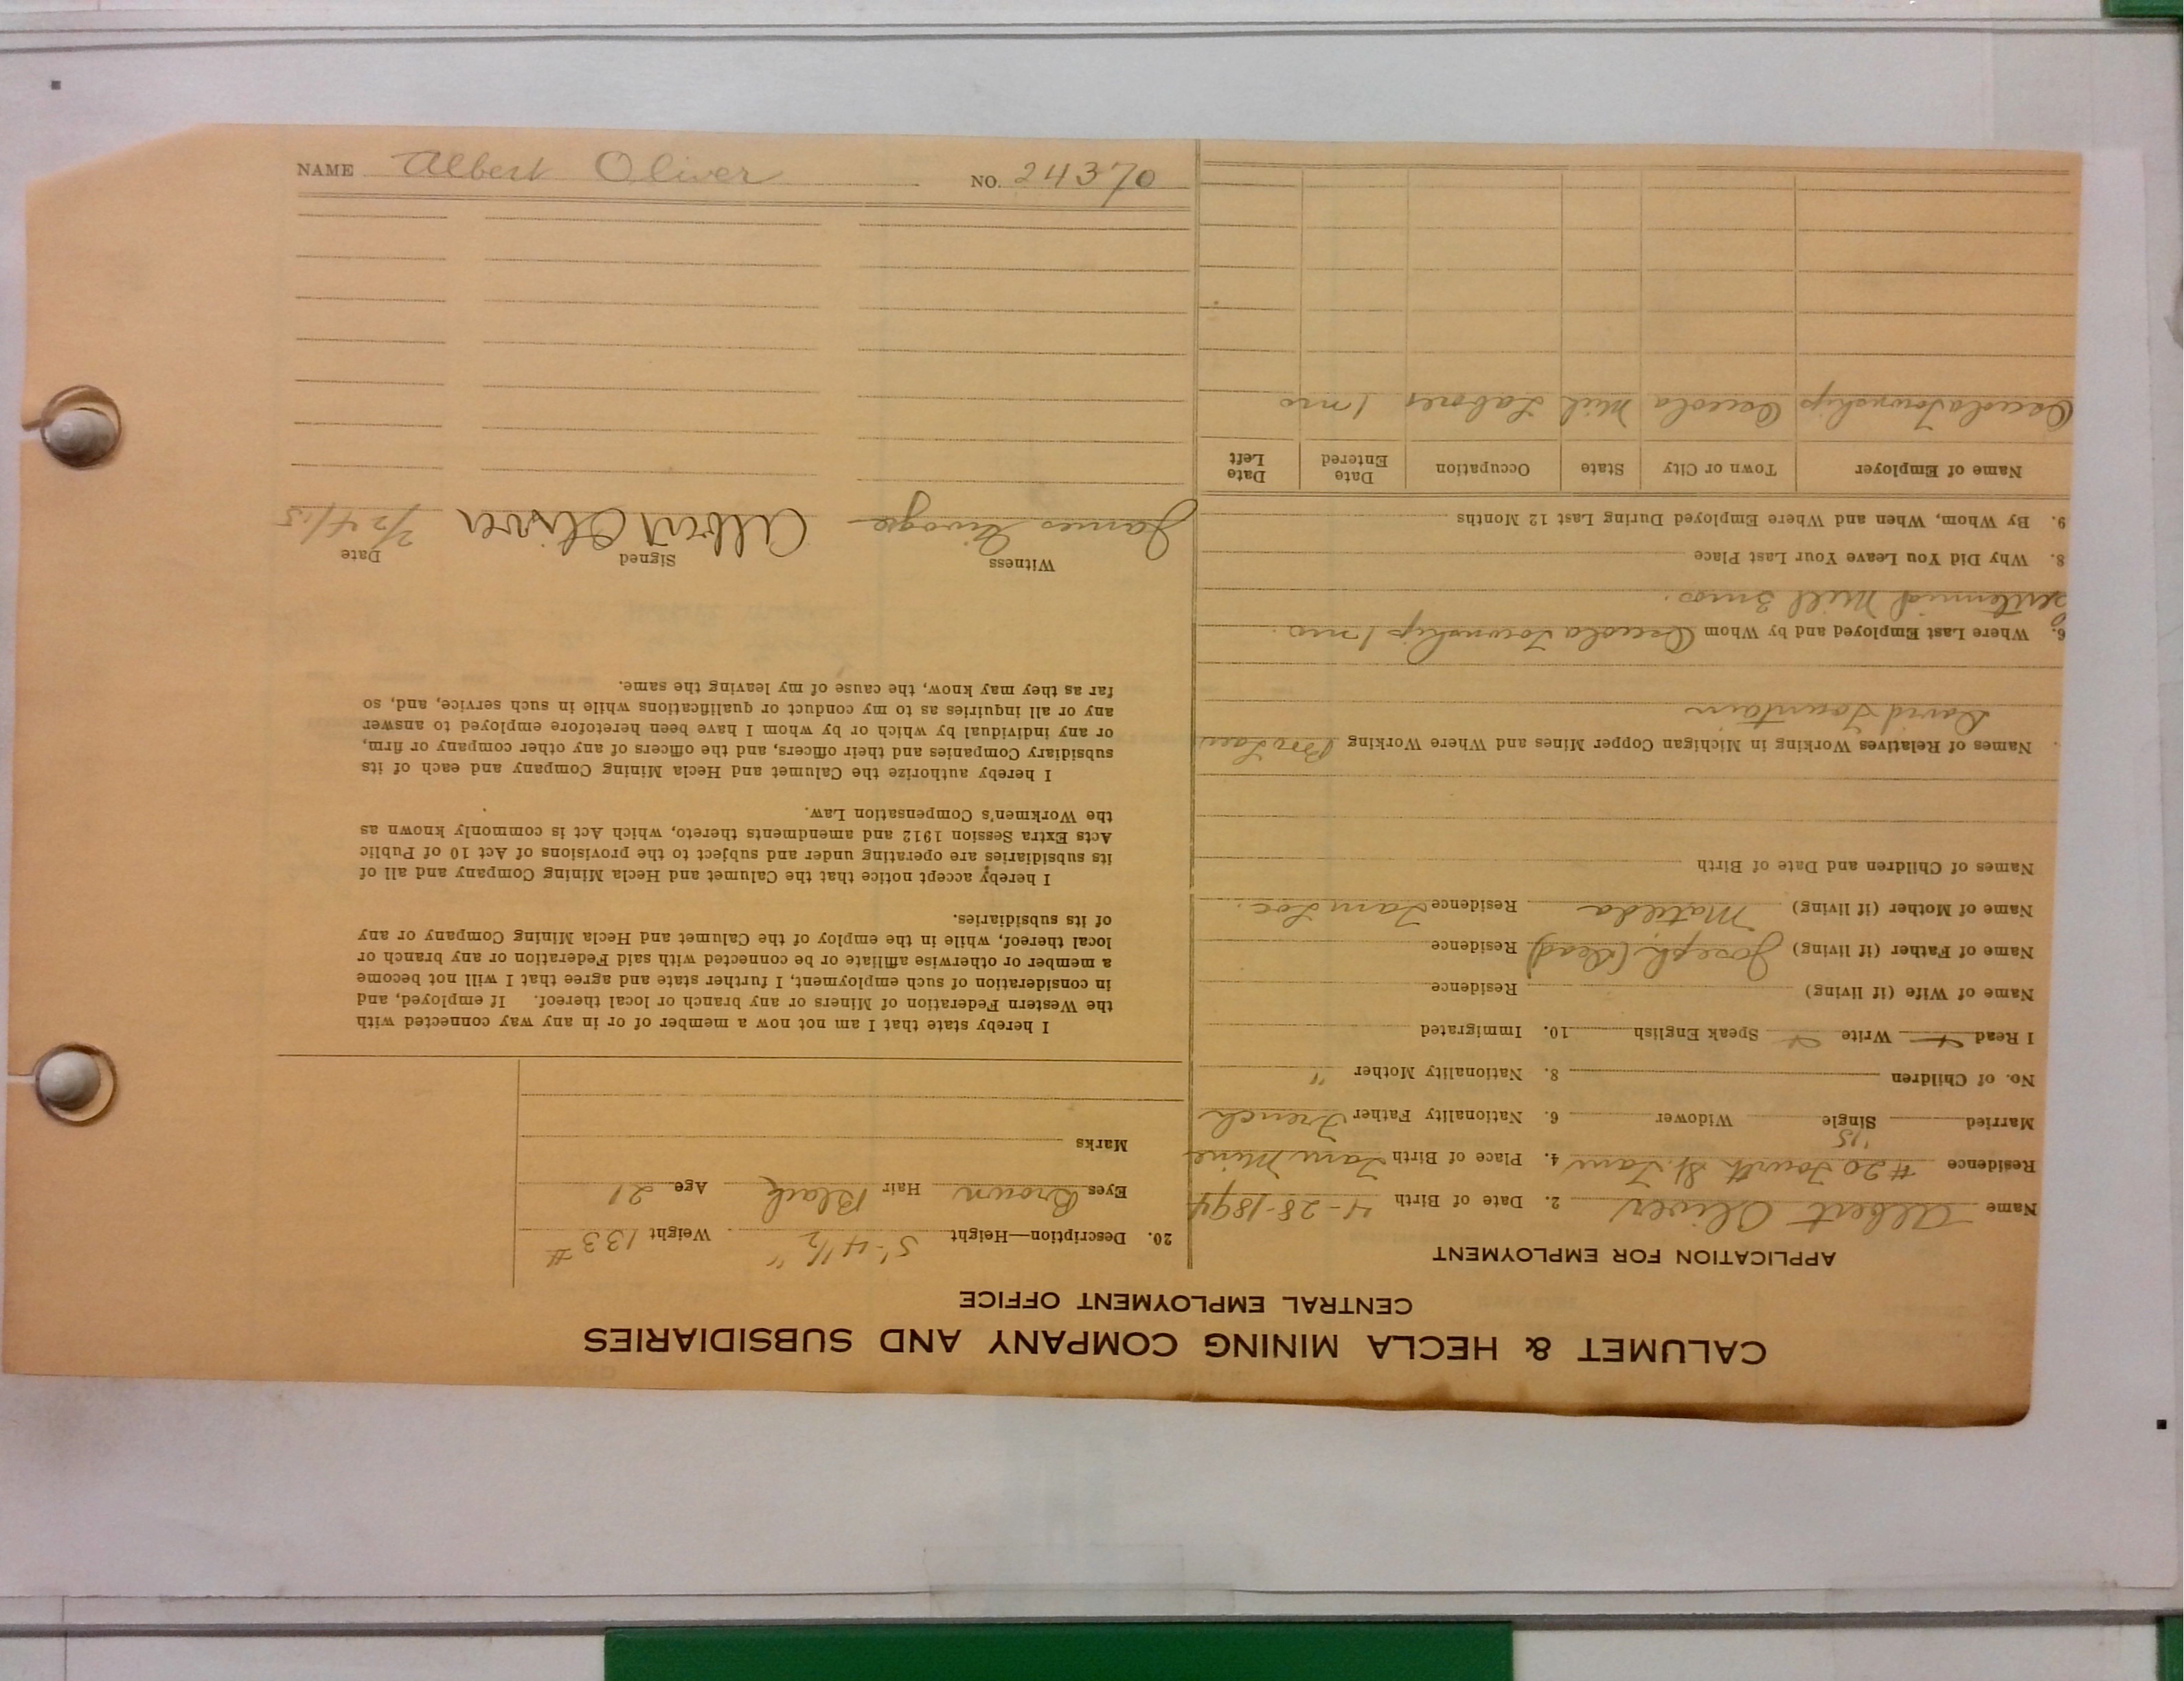 CALUMET & HECLA MINING COMPANY AND SUBSIDIARIES
CENTRAL EMPLOYMENT OFFICE
APPLICATION FOR EMPLOYMENT
Name Albert Oliver 2. Date of Birth 4-28-1894
Residence #20 Fourth St. Tam 4. Place of Birth Tam Mine
'15
Married Single Widower 6. Nationality Father French
No. of Children 8. Nationality Mother "
I Read Write Speak English 10. Immigrated
Name of Wife (if living) Residence
Name of Father (if living) Joseph (Dead) Residence
Name of Mother (if living) Matilda Residence Tam Loc.
Names of Children and Date of Birth
Names of Relatives Working in Michigan Copper Mines and Where Working Bro Law
David Fountain
6. Where Last Employed and by Whom Osceola Township 1 mo.
Mill 3 mos.
8. Why Did You Leave Your Last Place
9. By Whom, When and Where Employed During Last 12 Months
Name of Employer Town or City State Occupation Date Entered Date Left
Osceola Township Osceola Mich Laborer 1 mo
20. Description—Height 5'-4½" Weight 133#
Eyes Brown Hair Black Age 21
Marks
I hereby state that I am not now a member of or in any way connected with
the Western Federation of Miners or any branch or local thereof. If employed, and
in consideration of such employment, I further state and agree that I will not become
a member or otherwise affiliate or be connected with said Federation or any branch or
local thereof, while in the employ of the Calumet and Hecla Mining Company or any
of its subsidiaries.
I hereby accept notice that the Calumet and Hecla Mining Company and all of
its subsidiaries are operating under and subject to the provisions of Act 10 of Public
Acts Extra Session 1912 and amendments thereto, which Act is commonly known as
the Workmen's Compensation Law.
I hereby authorize the Calumet and Hecla Mining Company and each of its
subsidiary Companies and their officers, and the officers of any other company or firm,
or any individual by which or by whom I have been heretofore employed to answer
any or all inquiries as to my conduct or qualifications while in such service, and, so
far as they may know, the cause of my leaving the same.
Witness Signed Date
James Albert Oliver 7/24/15
NAME Albert Oliver NO. 24370